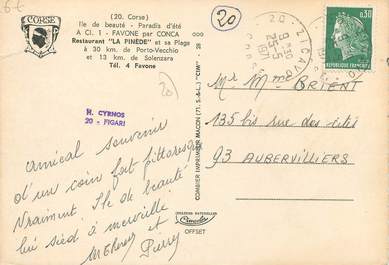 6€
CORSE
(20. Corse)
Ile de beauté - Paradis d'été
A Cl. 1 - FAVONE par CONCA
Restaurant "LA PINÈDE" et sa Plage
à 30 km. de Porto-Vecchio
et 13 km. de Solenzara
Tél. 4 Favone
20
20
H. CYRNOS
20 - FIGARI
Amical souvenir
d'un coin fort pittoresque
Vraiment. Ile de beauté
lui sied à merveille
et
Pierry
COMBIER IMPRIMEUR MACON (71. S.-&-L.) "CIM"
OFFSET
0,30
RÉPUBLIQUE FRANÇAISE
20 - ZICAVO
25-5
Mr Mme BRIENT
135 bis rue des cités
93 AUBERVILLIERS